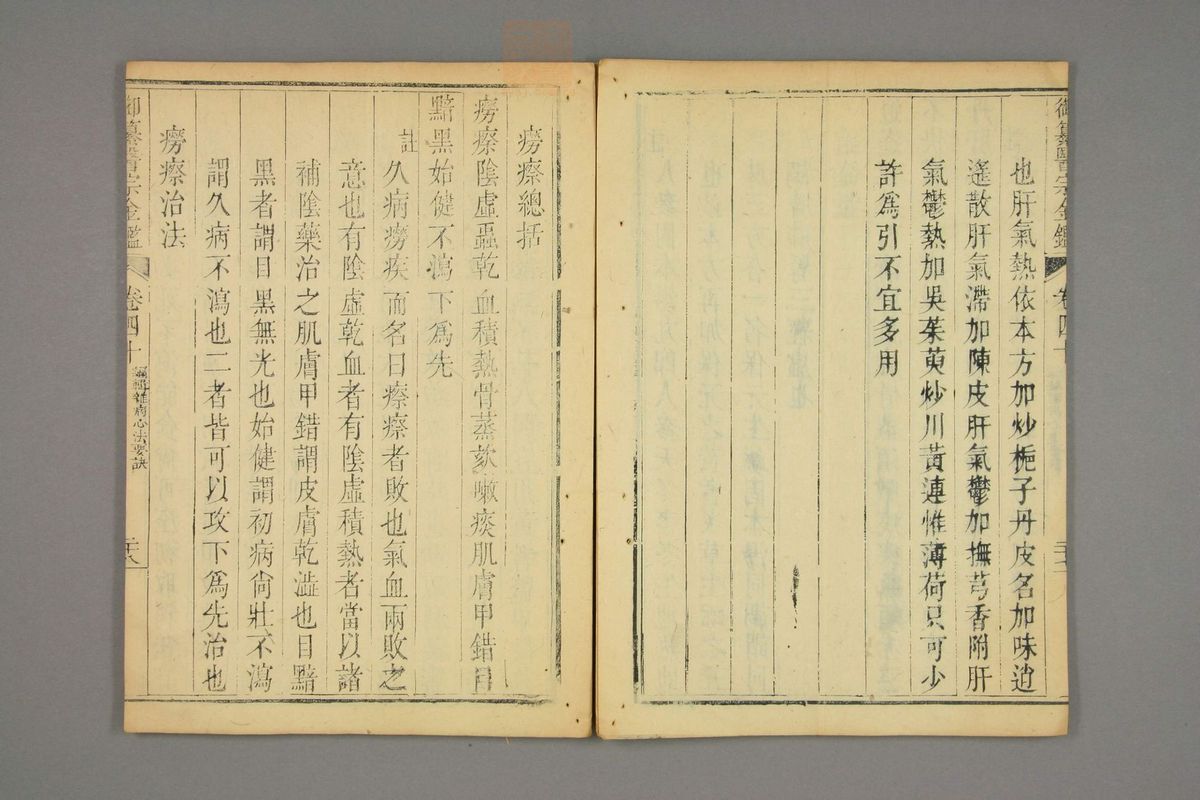 御纂醫宗金鑑 卷四十
也肝氣熱依本方加炒梔子丹皮名加味逍
遙散肝氣滯加陳皮肝氣鬱加撫芎香附肝
氣鬱熱加吳茱萸炒川黃連惟薄荷只可少
許爲引不宜多用
癆瘵總括
癆瘵陰虛蟲乾血積熱骨蒸欬嗽痰肌膚甲錯目
黯黑始健不瀉下爲先
註 久病癆疾而名曰瘵瘵者敗也氣血兩敗之
意也有陰虛乾血者有陰虛積熱者當以諸
補陰藥治之肌膚甲錯謂皮膚乾澁也目黯
黑者謂目黑無光也始健謂初病尙壯不瀉
謂久病不瀉也二者皆可以攻下爲先治也
癆瘵治法
御纂醫宗金鑑 卷四十 編輯雜病心法要訣 二十八